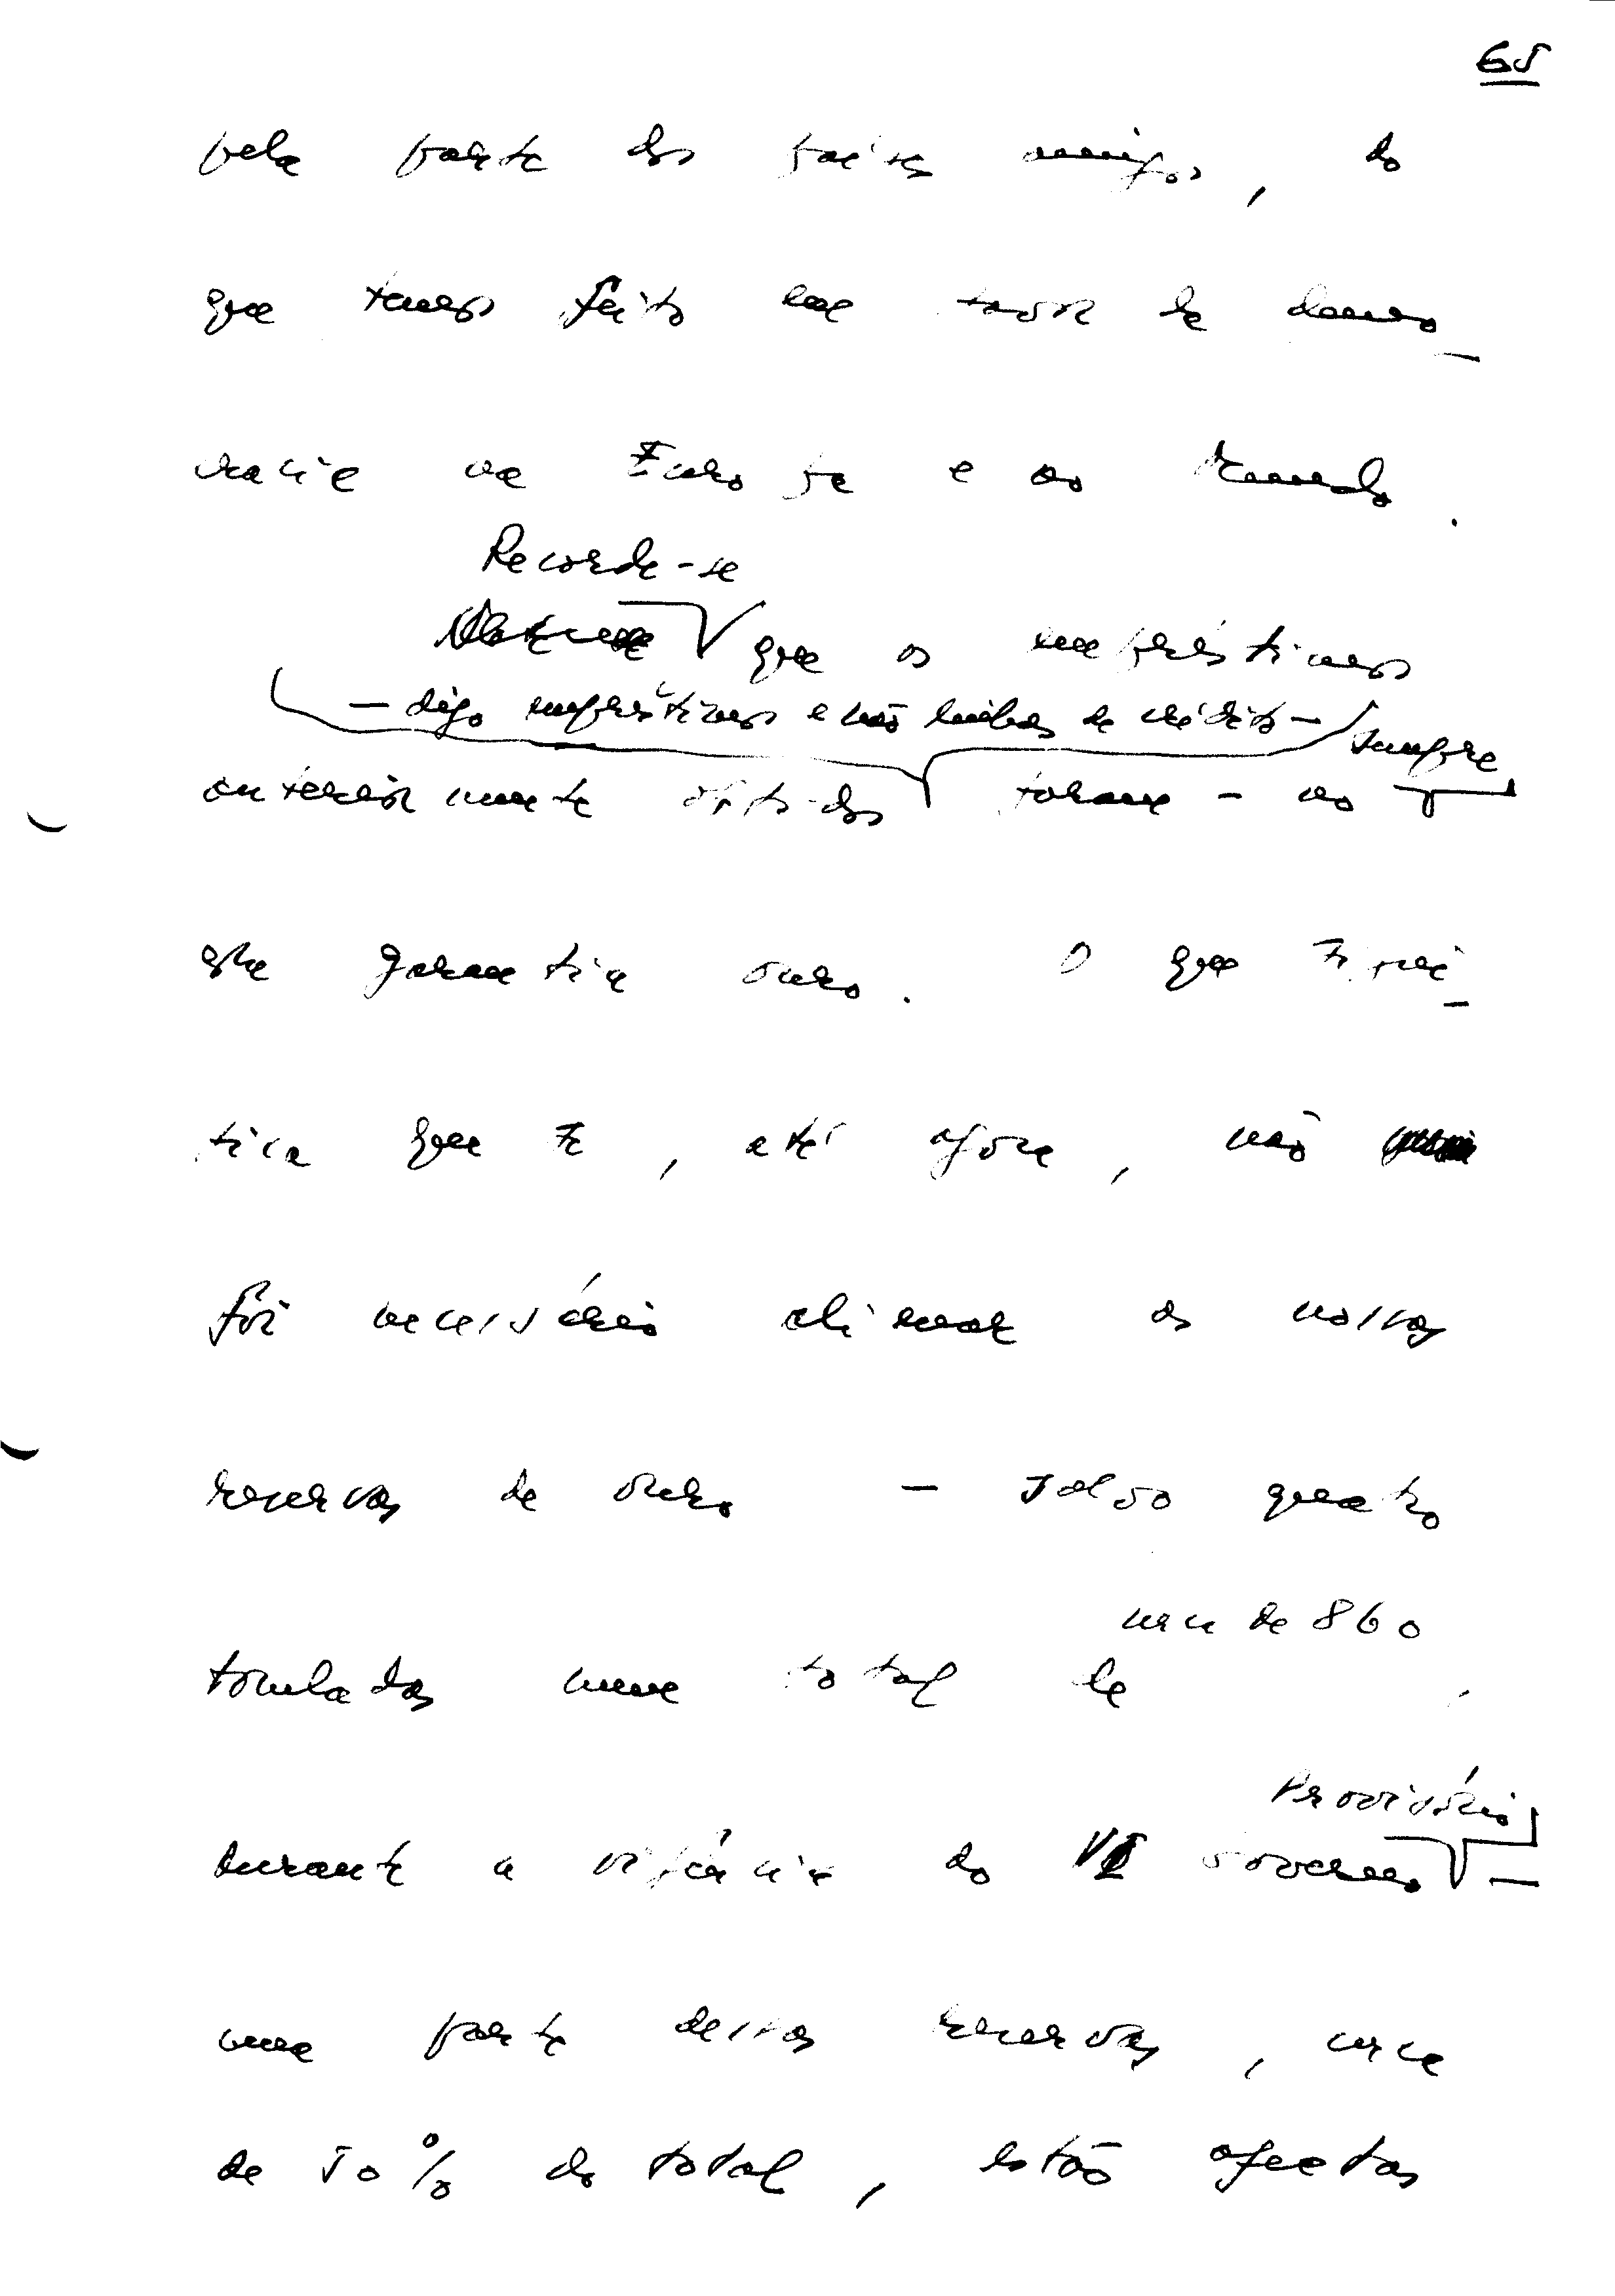 65
pela parte dos países amigos, do
que temos feito em favor da demo-
cracia na Europa e no Mundo.
Recorde-se
que os empréstimos
— digo empréstimos e não linhas de crédito — sempre
anteriormente obtidos foram-no
com garantia ouro. O que signi-
fica que se, até agora, não
foi necessário alienar as nossas
reservas de ouro — salvo quatro
toneladas num total de
cerca de 860,
Provisório
durante a vigência do VI Governo —
uma parte dessas reservas, cerca
de 50% do total, estão afectas